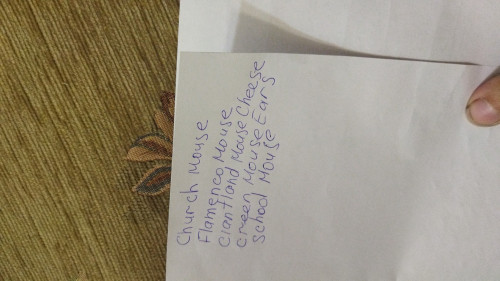 Church Mouse
Flamenco Mouse
Giantland Mouse Cheese
Green Mouse Ears
School Mouse